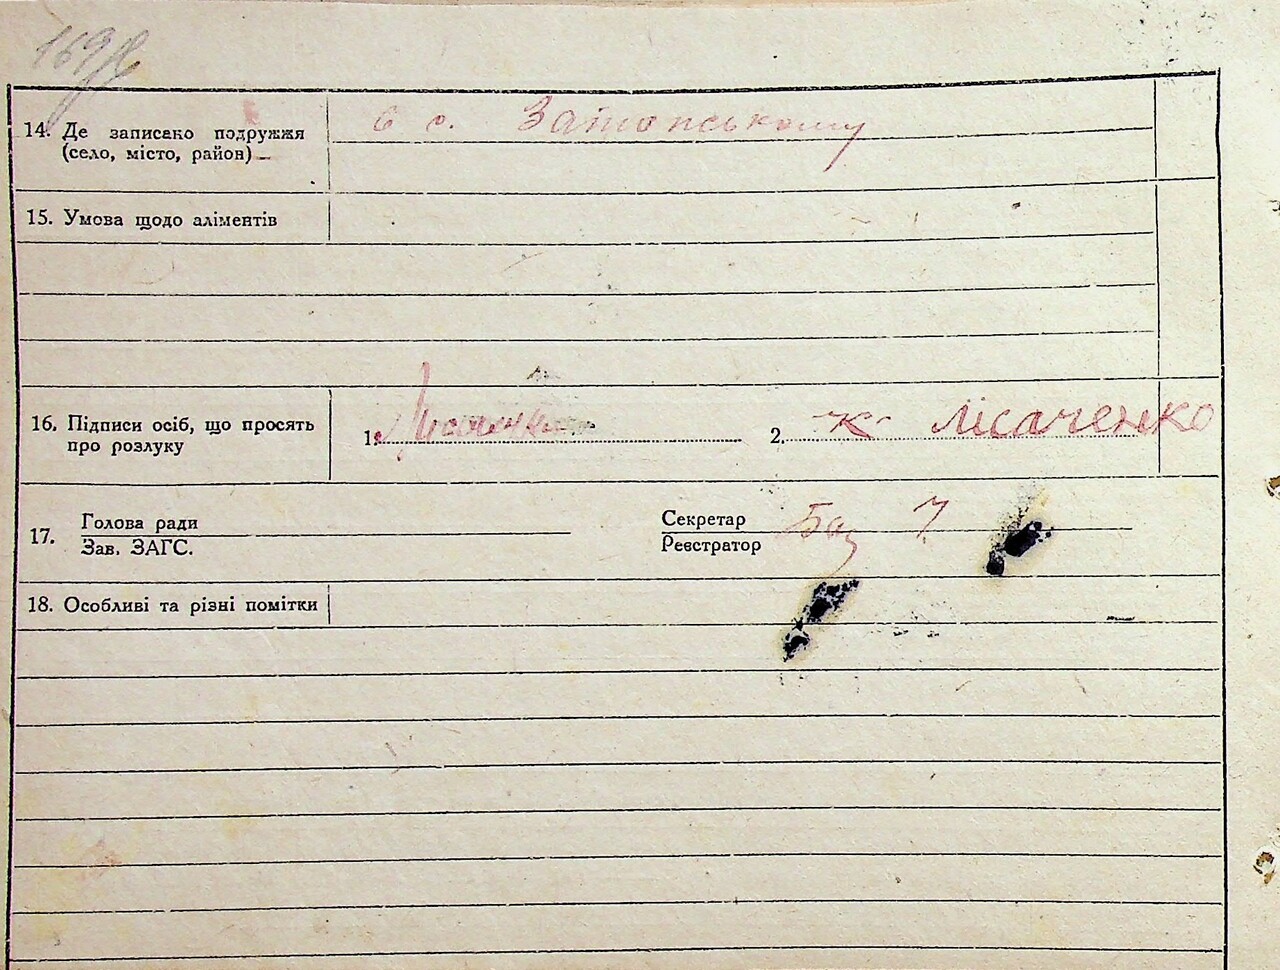 169
14. Де записако подружжя
(село, місто, район)
в с. Затонському
15. Умова щодо аліментів
16. Підписи осіб, що просять
про розлуку
1.
2. К. Лісаченко
17. Голова ради
Зав. ЗАГС.
Секретар
Реєстратор
18. Особливі та різні помітки